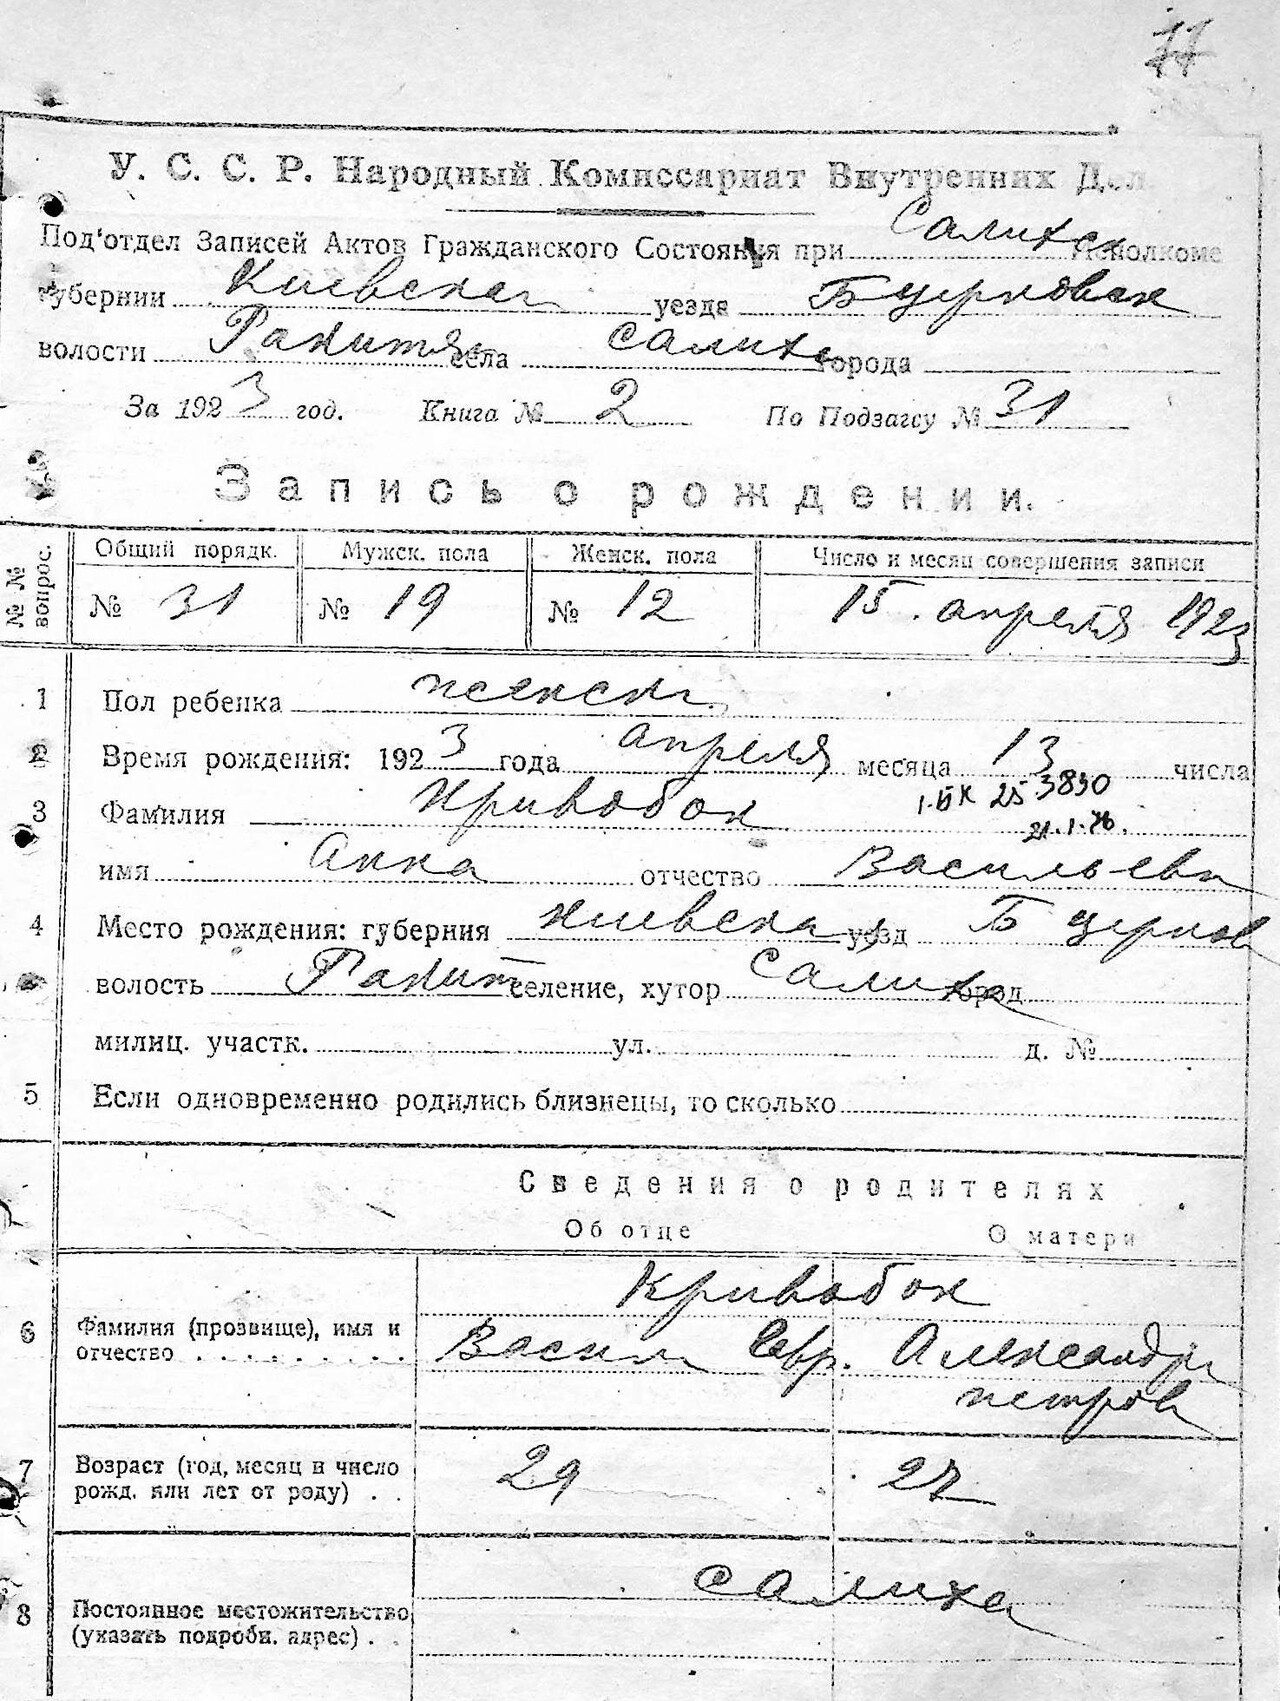 77
У. С. С. Р. Народный Комиссариат Внутренних Дел.
Под'отдел Записей Актов Гражданского Состояния при Салихск Исполкоме
губернии Киевская уезда Бцерковск
волости Ракитян села Салиха города
За 1923 год. Книга № 2 По Подзагсу № 31
Запись о рождении.
№ № вопрос. Общий порядк. Мужск. пола Женск. пола Число и месяц совершения записи
№ 31 № 19 № 12 15. апреля 1923
1 Пол ребенка женск.
2 Время рождения: 1923 года апреля месяца 13 числа
1-БК 25 3830
3 Фамилия Кривобок 21.1.76.
имя Анна отчество Васильевн
4 Место рождения: губерния Киевская уезд Б церков
волость Ракит селение, хутор Салиха город
милиц. участк. ул. д. №
5 Если одновременно родились близнецы, то сколько
Сведения о родителях
Об отце О матери
Кривобок
6 Фамилия (прозвище), имя и отчество Васил Александр
петров
7 Возраст (год, месяц и число рожд. или лет от роду) 29 27
8 Постоянное местожительство (указать подробн. адрес) Салиха